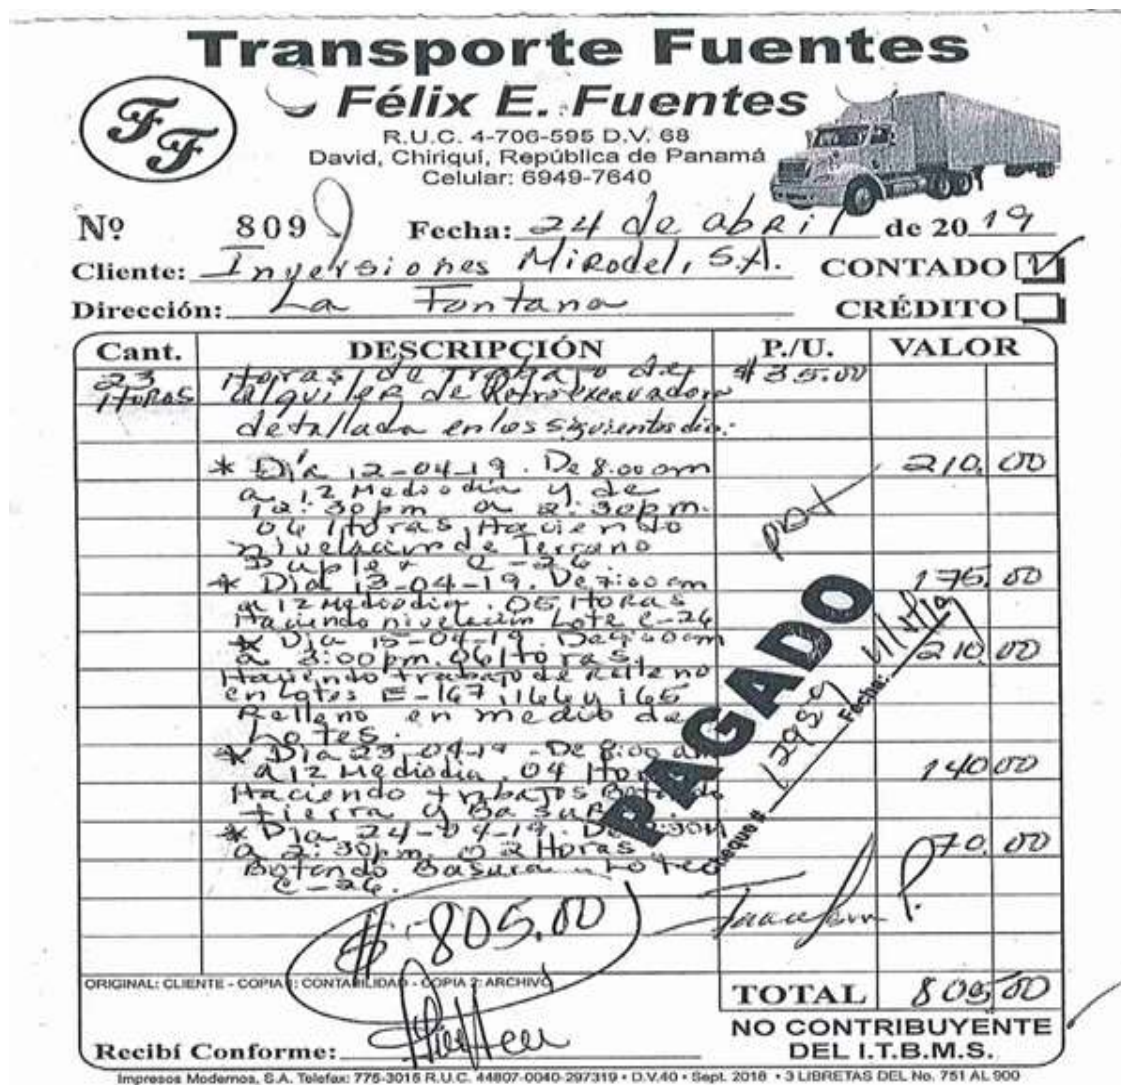 Transporte Fuentes
FF
Félix E. Fuentes
R.U.C. 4-706-595 D.V. 68
David, Chiriquí, República de Panamá
Celular: 6949-7640
Nº 809 Fecha: 24 de abril de 2019
Cliente: Inversiones Mirodel, S.A. CONTADO
Dirección: La Fontana CRÉDITO
Cant. DESCRIPCIÓN P./U. VALOR
23 Horas de Trabajo de $35.00
Horas alquiler de Retroexcavadora
detallada en los siguientes dia:
* Día 12-04-19. De 8:00 am 210.00
a 12 Mediodia y de
12:30pm a 2:30pm.
06 Horas, Haciendo
nivelación de Terreno
Duplex C-26.
* Dia 13-04-19. De 7:00 am 175.00
a 12 Mediodia. 05 Horas
Haciendo nivelación Lote C-26
* Dia 15-04-19. De am 210.00
a 3:00pm. 06 Horas
Haciendo trabajo de Relleno
en Lotes E-167, 166 y 165
Relleno en medio de
Lotes.
* Dia 23-04-19. De 8:00 am 140.00
a 12 Mediodia. 04 Hor
Haciendo trabajos Botando
tierra y Basura
* Dia 24-04-19. De :30 70.00
a 2:30pm. 02 Horas
Botando Basura Lote
C-26.
PAGADO
Cheque # Fecha:
$ 805.00
ORIGINAL: CLIENTE - COPIA 1: CONTABILIDAD - COPIA 2: ARCHIVO
TOTAL 805.00
NO CONTRIBUYENTE
DEL I.T.B.M.S.
Recibí Conforme:
Impresos Modernos, S.A. Telefax: 775-3015 R.U.C. 44807-0040-297319 • D.V.40 • Sept. 2018 • 3 LIBRETAS DEL No. 751 AL 900